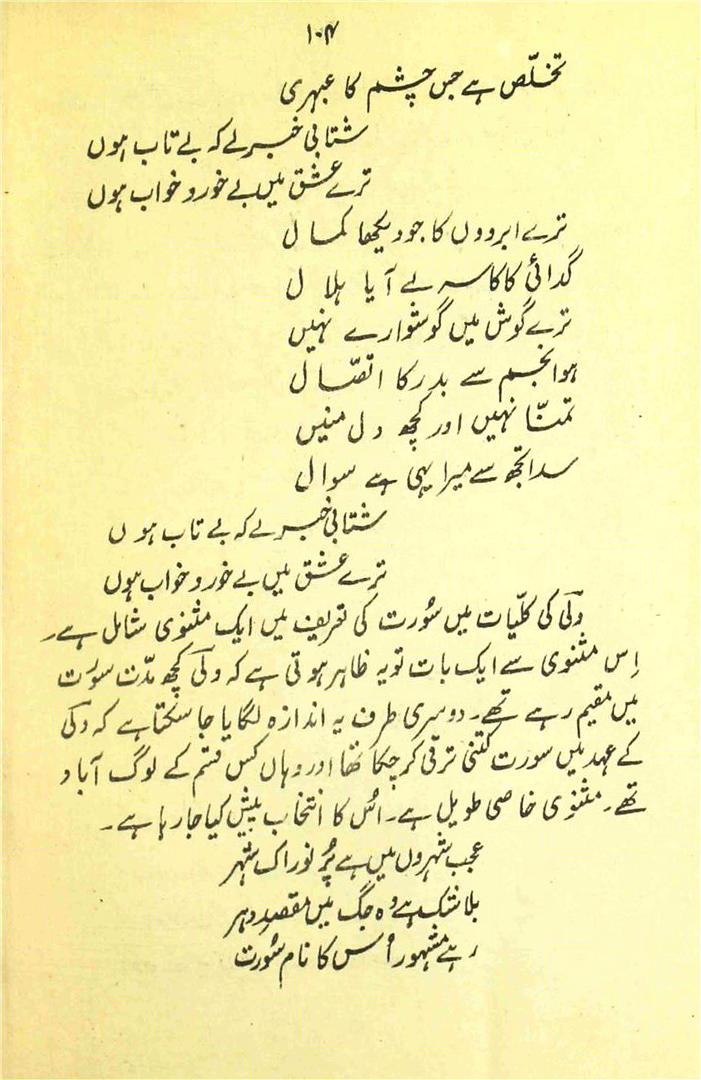 ۱۰۴
تخلّص ہے جس چشم کا عبہری
شتابی خبر لے کہ بے تاب ہوں
ترے عشق میں بے خور و خواب ہوں
ترے ابرووں کا جو دیکھا کمال
گدائی کا کاسہ لے آیا ہلال
ترے گوش میں گوشوارے نہیں
ہوا نجم سے بدر کا اتصّال
تمنّا نہیں اور کچھ دل منیں
سدا تجھ سے میرا یہی ہے سوال
شتابی خبر لے کہ بے تاب ہوں
ترے عشق میں بے خور و خواب ہوں
ولی کی کلّیات میں سُورت کی تعریف میں ایک مثنوی شامل ہے۔
اِس مثنوی سے ایک بات تو یہ ظاہر ہوتی ہے کہ ولی کچھ مدّت سورت
میں مقیم رہے تھے۔ دوسری طرف یہ اندازہ لگایا جا سکتا ہے کہ ولی
کے عہد میں سورت کتنی ترقی کر چکا تھا اور وہاں کس قسم کے لوگ آباد
تھے۔ مثنوی خاصی طویل ہے۔ اُس کا انتخاب پیش کیا جا رہا ہے۔
عجب شہروں میں ہے پُر نور اک شہر
بلا شک ہے وہ جگ میں مقصد دہر
رہے مشہور اُس کا نام سُورت